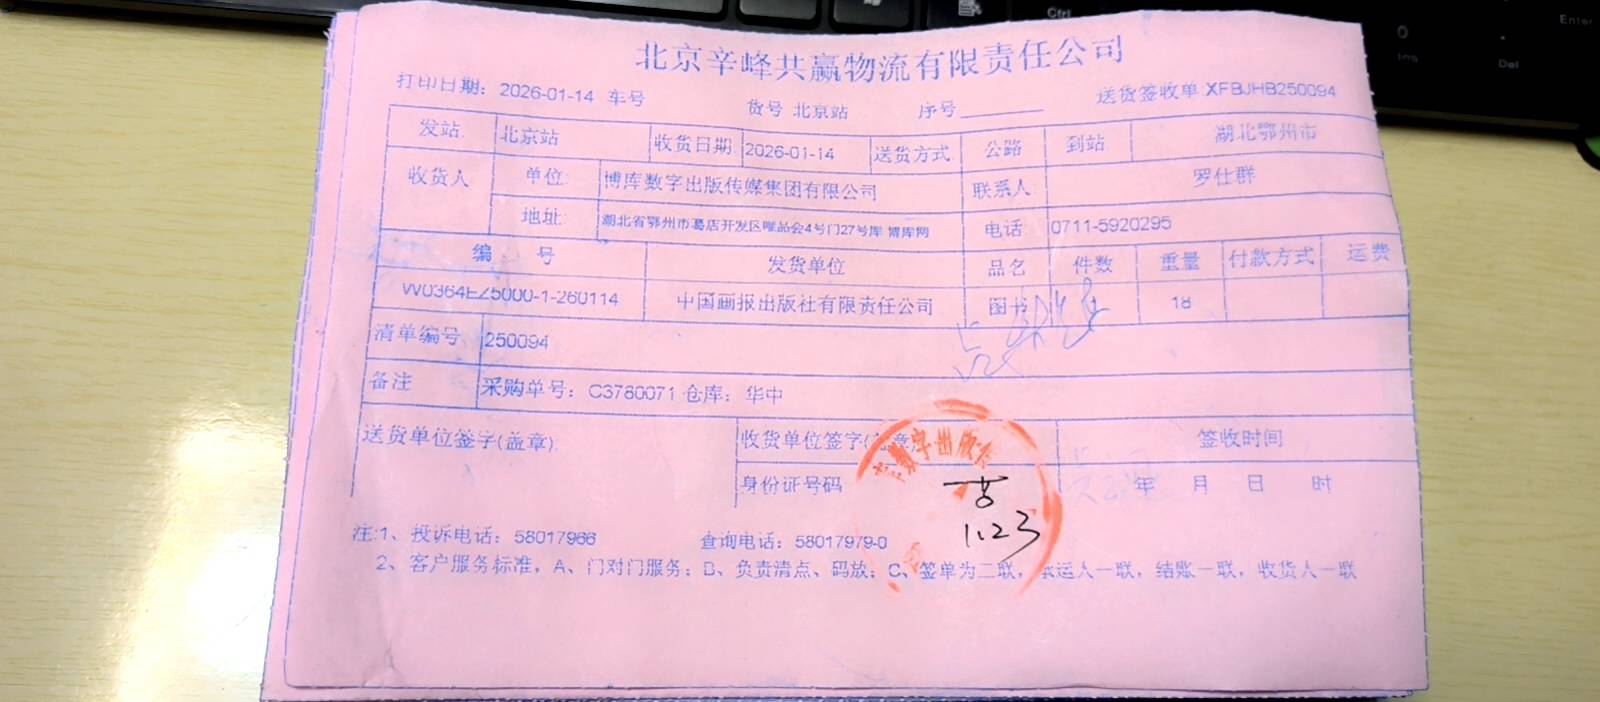 北京辛峰共赢物流有限责任公司
打印日期：2026-01-14 车号 货号 北京站 序号 送货签收单 XFBJHB250094
发站 北京站 收货日期 2026-01-14 送货方式 公路 到站 湖北鄂州市
收货人 单位: 博库数字出版传媒集团有限公司 联系人 罗仕群
地址: 湖北省鄂州市葛店开发区唯品会4号门27号库 博库网 电话: 0711-5920295
编 号 发货单位 品名 件数 重量 付款方式 运费
W0364EZ5000-1-260114 中国画报出版社有限责任公司 图书 18
清单编号 250094
备注 采购单号：C3780071 仓库：华中
送货单位签字(盖章): 收货单位签字( 签收时间
数字出版传
身份证号码 年 月 日 时
1.23
注:1、投诉电话：58017966 查询电话：58017979-0
2、客户服务标准，A、门对门服务；B、负责清点、码放；C、签单为二联，承运人一联，结账一联，收货人一联
Ctrl
0
Ins
Del
Enter